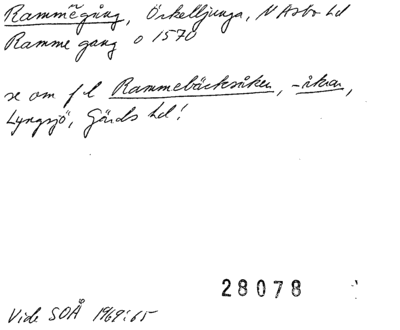 Rammegång, Örkelljunga, N Åsbo hd
Ramme gang o 1570
se om f l Rammebäcksåker, -åkrar,
Lyngsjö, Gärds hd!
28078
Vide SOÅ 1969:65